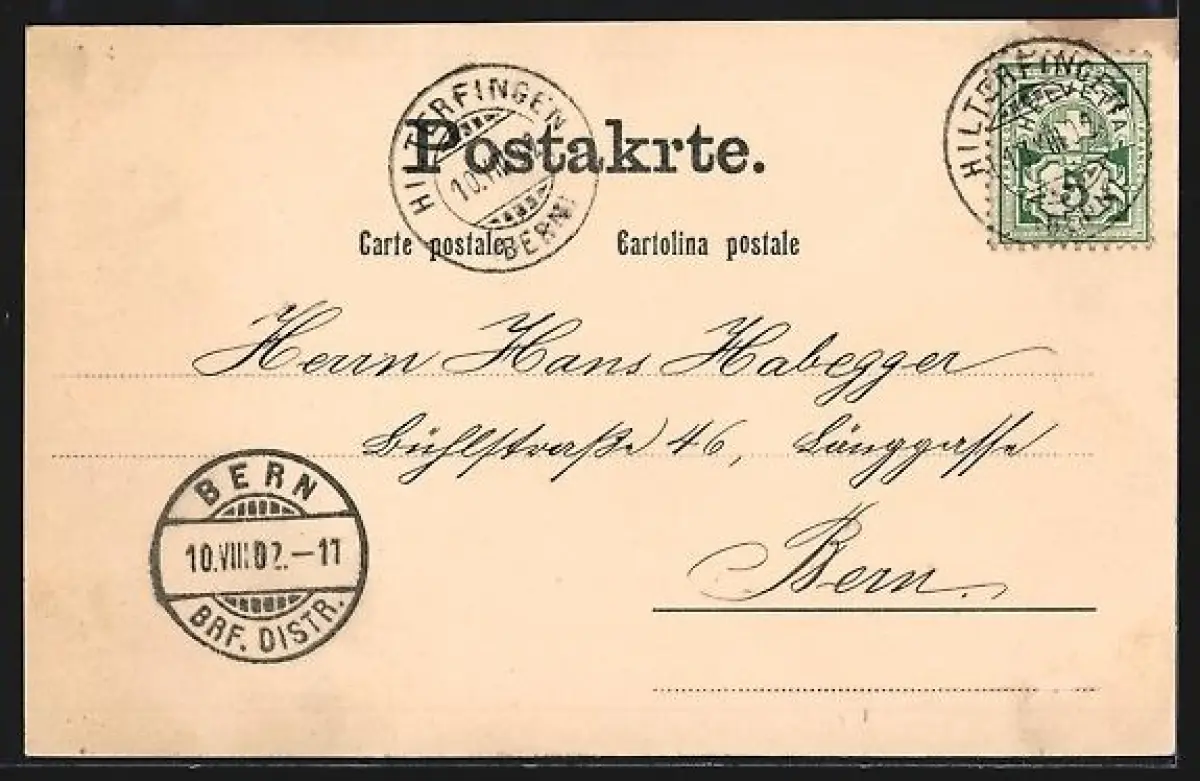 HILTERFINGEN
10.VIII.02
BERN
Postakrte.
HILTERFINGEN
HELVETIA
5
BERN
Carte postale Cartolina postale
Herrn Hans Habegger
Bühlstraße 46, Länggasse
Bern.
BERN
10.VIII.02.-11
BRF. DISTR.